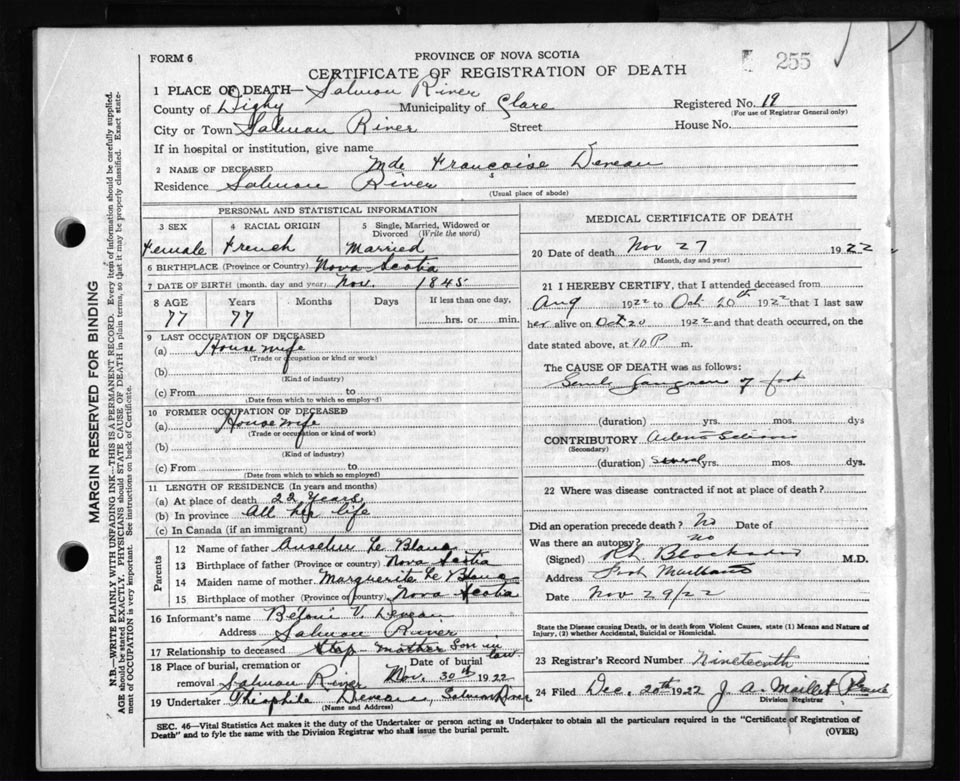 FORM 6
PROVINCE OF NOVA SCOTIA
CERTIFICATE OF REGISTRATION OF DEATH
255
1 PLACE OF DEATH— Salmon River
County of Digby Municipality of Clare Registered No. 19
(For use of Registrar General only)
City or Town Salmon River Street House No.
If in hospital or institution, give name
2 NAME OF DECEASED Mde Francoise Deveau
Residence Salmon River
(Usual place of abode)
PERSONAL AND STATISTICAL INFORMATION
3 SEX 4 RACIAL ORIGIN 5 Single, Married, Widowed or Divorced (Write the word)
Female French Married
6 BIRTHPLACE (Province or Country) Nova Scotia
7 DATE OF BIRTH (month, day and year) Nov. 1845
8 AGE Years Months Days If less than one day,
77 77 hrs. or min.
9 LAST OCCUPATION OF DECEASED
(a) House wife
(Trade or occupation or kind or work)
(b)
(Kind of industry)
(c) From to
(Date from which to which so employed)
10 FORMER OCCUPATION OF DECEASED
(a) House wife
(Trade or occupation or kind of work)
(b)
(Kind of industry)
(c) From to
(Date from which to which so employed)
11 LENGTH OF RESIDENCE (In years and months)
(a) At place of death 22 Years
(b) In province All her life
(c) In Canada (if an immigrant)
Parents
12 Name of father Anselm Le Blanc
13 Birthplace of father (Province or country) Nova Scotia
14 Maiden name of mother Marguerite Le Blanc
15 Birthplace of mother (Province or country) Nova Scotia
16 Informant's name V. Deveau
Address Salmon River
17 Relationship to deceased Step mother Son in law
18 Place of burial, cremation or removal Salmon River Date of burial Nov. 30th 1922
19 Undertaker Theophile Deveau, Salmon River
(Name and Address)
MEDICAL CERTIFICATE OF DEATH
20 Date of death Nov 27 1922
(Month, day and year)
21 I HEREBY CERTIFY, that I attended deceased from
Aug 1922 to Oct 20th 1922 that I last saw
her alive on Oct 20 1922 and that death occurred, on
date stated above, at 10 P m.
The CAUSE OF DEATH was as follows:
Senile Gangrene of foot
(duration) yrs. mos. dys
CONTRIBUTORY
(Secondary)
(duration) several yrs. mos. dys.
22 Where was disease contracted if not at place of death?
Did an operation precede death? No Date of
Was there an autopsy? no
(Signed) M.D.
Address Port Maitland
Date Nov 29/22
State the Disease causing Death, or in death from Violent Causes, state (1) Means and Nature of Injury, (2) whether Accidental, Suicidal or Homicidal.
23 Registrar's Record Number Nineteenth
24 Filed Dec. 20th 1922 J. A. Maillet
Division Registrar
SEC. 46—Vital Statistics Act makes it the duty of the Undertaker or person acting as Undertaker to obtain all the particulars required in the "Certificate of Registration of
Death" and to fyle the same with the Division Registrar who shall issue the burial permit. (OVER)
MARGIN RESERVED FOR BINDING
N.B.—WRITE PLAINLY WITH UNFADING INK—THIS IS A PERMANENT RECORD. Every item of information should be carefully supplied.
AGE should be stated EXACTLY. PHYSICIANS should STATE CAUSE OF DEATH in plain terms, so that it may be properly classified. Exact statement of OCCUPATION is very important. See instructions on back of Certificate.